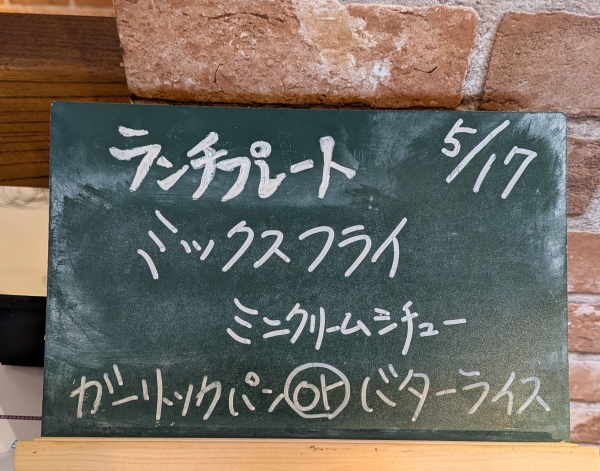 ランチプレート 5/17
ミックスフライ
ミニクリームシチュー
ガーリックパン or バターライス